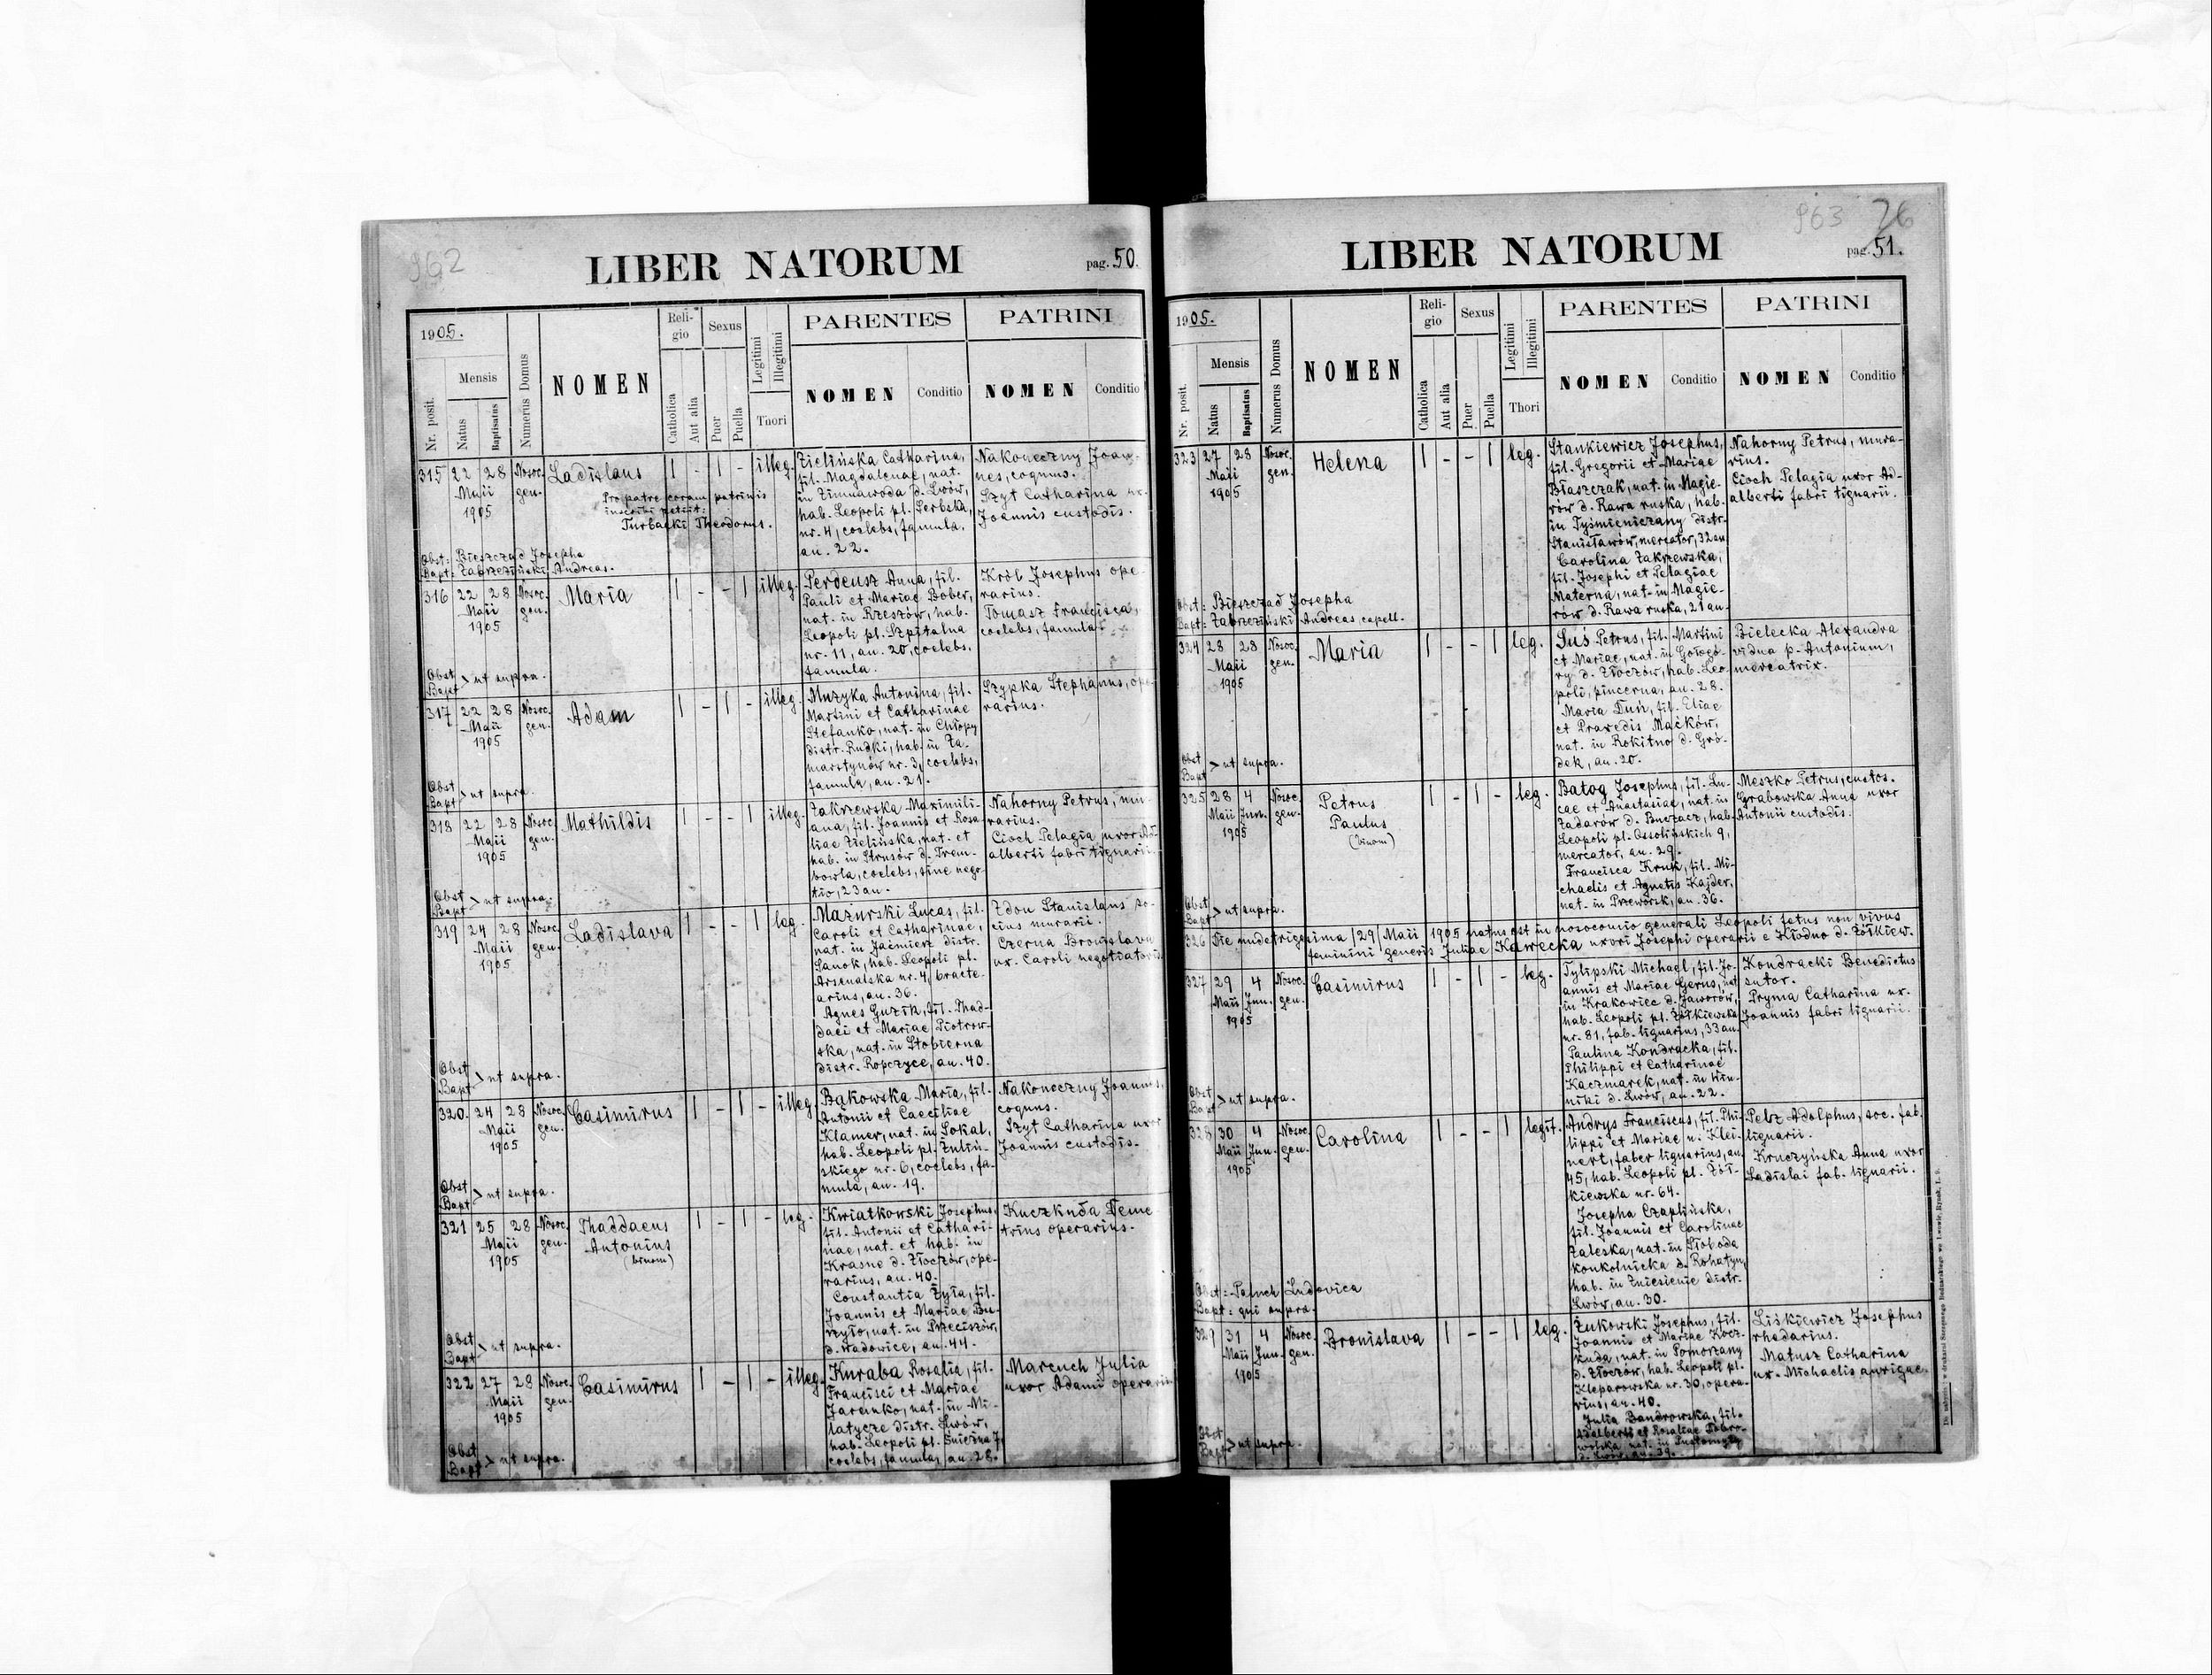 962
LIBER NATORUM
pag. 50.
1905.
Mensis
Nr. posit.
Natus
Baptisatus
Numerus Domus
NOMEN
Reli-
gio
Catholica
Aut alia
Sexus
Puer
Puella
Legitimi
Illegitimi
Thori
PARENTES
NOMEN
Conditio
PATRINI
NOMEN
Conditio
315
22 28
Maii
1905
Nosoc.
gen.
Ladislaus
Pro patre coram patrinis
inscribi petiit:
Turbacki Theodorus.
1 - 1 - illeg.
Zielińska Catharina,
fil. Magdalenae, nat.
in Zimnawoda d. Lwów,
hab. Leopoli pl. Serbska,
nr. 4, coelebs, famula,
an. 22.
Nakoneczny Joan-
nes, coquus.
Szyt Catharina ux.
Joannis custodis.
Obst: Bieszczad Josepha
Bapt: Zabrzeziński Andreas.
316
22 28
Maii
1905
Nosoc.
gen.
Maria
1 - - 1 illeg.
Perdeusz Anna, fil.
Pauli et Mariae Bober,
nat. in Rzeszów, hab.
Leopoli pl. Szpitalna
nr. 11, an. 20, coelebs.
famula.
Król Josephus ope-
rarius.
Tomasz Francisca,
coelebs, famula.
Obst
Bapt > ut supra.
317
22 28
Maii
1905
Nosoc.
gen.
Adam
1 - 1 - illeg.
Muzyka Antonina, fil.
Martini et Catharinae
Stefanko, nat. in Chłopy
distr. Rudki, hab. in Za-
marstynów nr. 3, coelebs,
famula, an. 21.
Szypka Stephanus, ope-
rarius.
Obst
Bapt > ut supra.
318
22 28
Maii
1905
Nosoc.
gen.
Mathildis
1 - - 1 illeg.
Zakrzewska Maximili-
ana, fil. Joannis et Rosa-
liae Zielińska, nat. et
hab. in Strusów d. Trem-
bowla, coelebs, sine nego-
tio, 23 an.
Nahorny Petrus, mu-
rarius.
Cioch Pelagia uxor Ad-
alberti fabri tignarii.
Obst
Bapt > ut supra.
319
24 28
Maii
1905
Nosoc.
gen.
Ladislava
1 - - 1 leg.
Mazurski Lucas, fil.
Caroli et Catharinae,
nat. in Jaćmierz distr.
Sanok, hab. Leopoli pl.
Arsenalska nr. 4, bracte-
arius, an. 36.
Agnes Guzik, fil. Thad-
daei et Mariae Piotrow-
ska, nat. in Stobierna
distr. Ropczyce, an. 40.
Zdon Stanislaus so-
cius murarii.
Czerna Bronislava
ux. Caroli negotiatoris
Obst
Bapt > ut supra.
320.
24 28
Maii
1905
Nosoc.
gen.
Casimirus
1 - 1 - illeg.
Bąkowska Maria, fil.
Antonii et Caeciliae
Klamer, nat. in Sokal,
hab. Leopoli pl. Żuliń-
skiego nr. 6, coelebs, fa-
mula, an. 19.
Nakoneczny Joannes,
coquus.
Szyt Catharina uxor
Joannis custodis.
Obst
Bapt > ut supra.
321
25 28
Maii
1905
Nosoc.
gen.
Thaddaeus
Antonius
(binom)
1 - 1 - leg.
Kwiatkowski Josephus,
fil. Antonii et Cathari-
nae, nat. et hab. in
Krasne d. Złoczów, ope-
rarius, an. 40.
Constantia Żyła, fil.
Joannis et Mariae Bu-
rzyło, nat. in Przeciszów,
d. Wadowice, an. 44.
Kuczkuda Deme
trius operarius.
Obst
Bapt > ut supra.
322
27 28
Maii
1905
Nosoc.
gen.
Casimirus
1 - 1 - illeg.
Kuraba Rosalia, fil.
Francisci et Mariae
Jaremko, nat. in Mi-
latycze distr. Lwów,
hab. Leopoli pl. Śnieżna 7
coelebs, famula, an. 28.
Marcuch Julia
uxor Adami operarii
Obst
Bapt > ut supra.
963 76
LIBER NATORUM
pag. 51.
1905.
Mensis
Nr. posit.
Natus
Baptisatus
Numerus Domus
NOMEN
Reli-
gio
Catholica
Aut alia
Sexus
Puer
Puella
Legitimi
Illegitimi
Thori
PARENTES
NOMEN
Conditio
PATRINI
NOMEN
Conditio
323
27 28
Maii
1905
Nosoc.
gen.
Helena
1 - - 1 leg.
Stankiewicz Josephus,
fil. Gregorii et Mariae
Błaszczak, nat. in Magie-
rów d. Rawa ruska, hab.
in Tyśmieniczany distr.
Stanisławów, mercator, 32 an
Carolina Zakrzewska,
fil. Josephi et Pelagiae
Materna, nat. in Magie-
rów d. Rawa ruska, 21 an.
Nahorny Petrus, mura-
rius.
Cioch Pelagia uxor Ad-
alberti fabri tignarii.
Obst: Bieszczad Josepha
Bapt: Zabrzeziński Andreas capell.
324
28 28
Maii
1905
Nosoc.
gen.
Maria
1 - - 1 leg.
Suś Petrus, fil. Martini
et Mariae, nat. in Gołogó-
ry d. Złoczów, hab. Leo-
poli, pincerna, an. 28.
Maria Duń, fil. Eliae
et Praxedis Maćków,
nat. in Rokitno d. Gró-
dek, an. 20.
Bielecka Alexandra
vidua p. Antonium,
mercatrix.
Obst
Bapt > ut supra.
325
28 4
Maii Jun.
1905
Nosoc.
gen.
Petrus
Paulus
(binom)
1 - 1 - leg.
Batog Josephus, fil. Lu-
cae et Anastasiae, nat. in
Zadarów d. Buczacz, hab.
Leopoli pl. Ossolińskich 9,
mercator, an. 29.
Francisca Kruk, fil. Mi-
chaelis et Agnetis Kajder,
nat. in Przeworsk, an. 36.
Meszko Petrus, custos.
Grabowska Anna uxor
Antonii custodis.
Obst
Bapt > ut supra.
326 Die undetrigesima /29/ Maii 1905 natus est in nosocomio generali Leopoli fetus non vivus
feminini generis Juliae Kawecka uxori Josephi operarii e Kłodno d. Żółkiew.
327
29 4
Maii Jun.
1905
Nosoc.
gen.
Casimirus
1 - 1 - leg.
Tylipski Michael, fil. Jo-
annis et Mariae Gerus, nat.
in Krakowiec d. Jaworów,
hab. Leopoli pl. Żółkiewska
nr. 81, fab. lignarius, 33 an.
Paulina Kondracka, fil.
Philippi et Catharinae
Kaczmarek, nat. in Win-
niki d. Lwów, an. 22.
Kondracki Benedictus
sutor.
Pryma Catharina ux.
Joannis fabri lignarii.
Obst
Bapt > ut supra.
328
30 4
Maii Jun.
1905
Nosoc.
gen.
Carolina
1 - - 1 legit.
Andrys Franciscus, fil. Phi-
lippi et Mariae n. Klei-
nert, faber lignarius, an.
45, hab. Leopoli pl. Żół-
kiewska nr. 64.
Josepha Czaplińska,
fil. Joannis et Carolinae
Zaleska, nat. in Słoboda
konkolnicka d. Rohatyn,
hab. in Zniesienie distr.
Lwów, an. 30.
Pelz Adolphus, soc. fab.
lignarii.
Kruczyńska Anna uxor
Ladislai fab. lignarii.
Obst: Paluch Ludovica
Bapt: qui supra.
329
31 4
Maii Jun.
1905
Nosoc.
gen.
Bronislava
1 - - 1 leg.
Żukowski Josephus, fil.
Joannis et Mariae Kocz-
kuda, nat. in Pomorzany
d. Złoczów, hab. Leopoli pl.
Kleparowska nr. 30, opera-
rius, an. 40.
Julia Bandrowska, fil.
Adalberti et Rosaliae Dobro-
wolska nat. in Pustomyty
d. Lwów, an. 39.
Liśkiewicz Josephus
rhedarius.
Matusz Catharina
ux. Michaelis aurigae.
Obst
Bapt > ut supra.